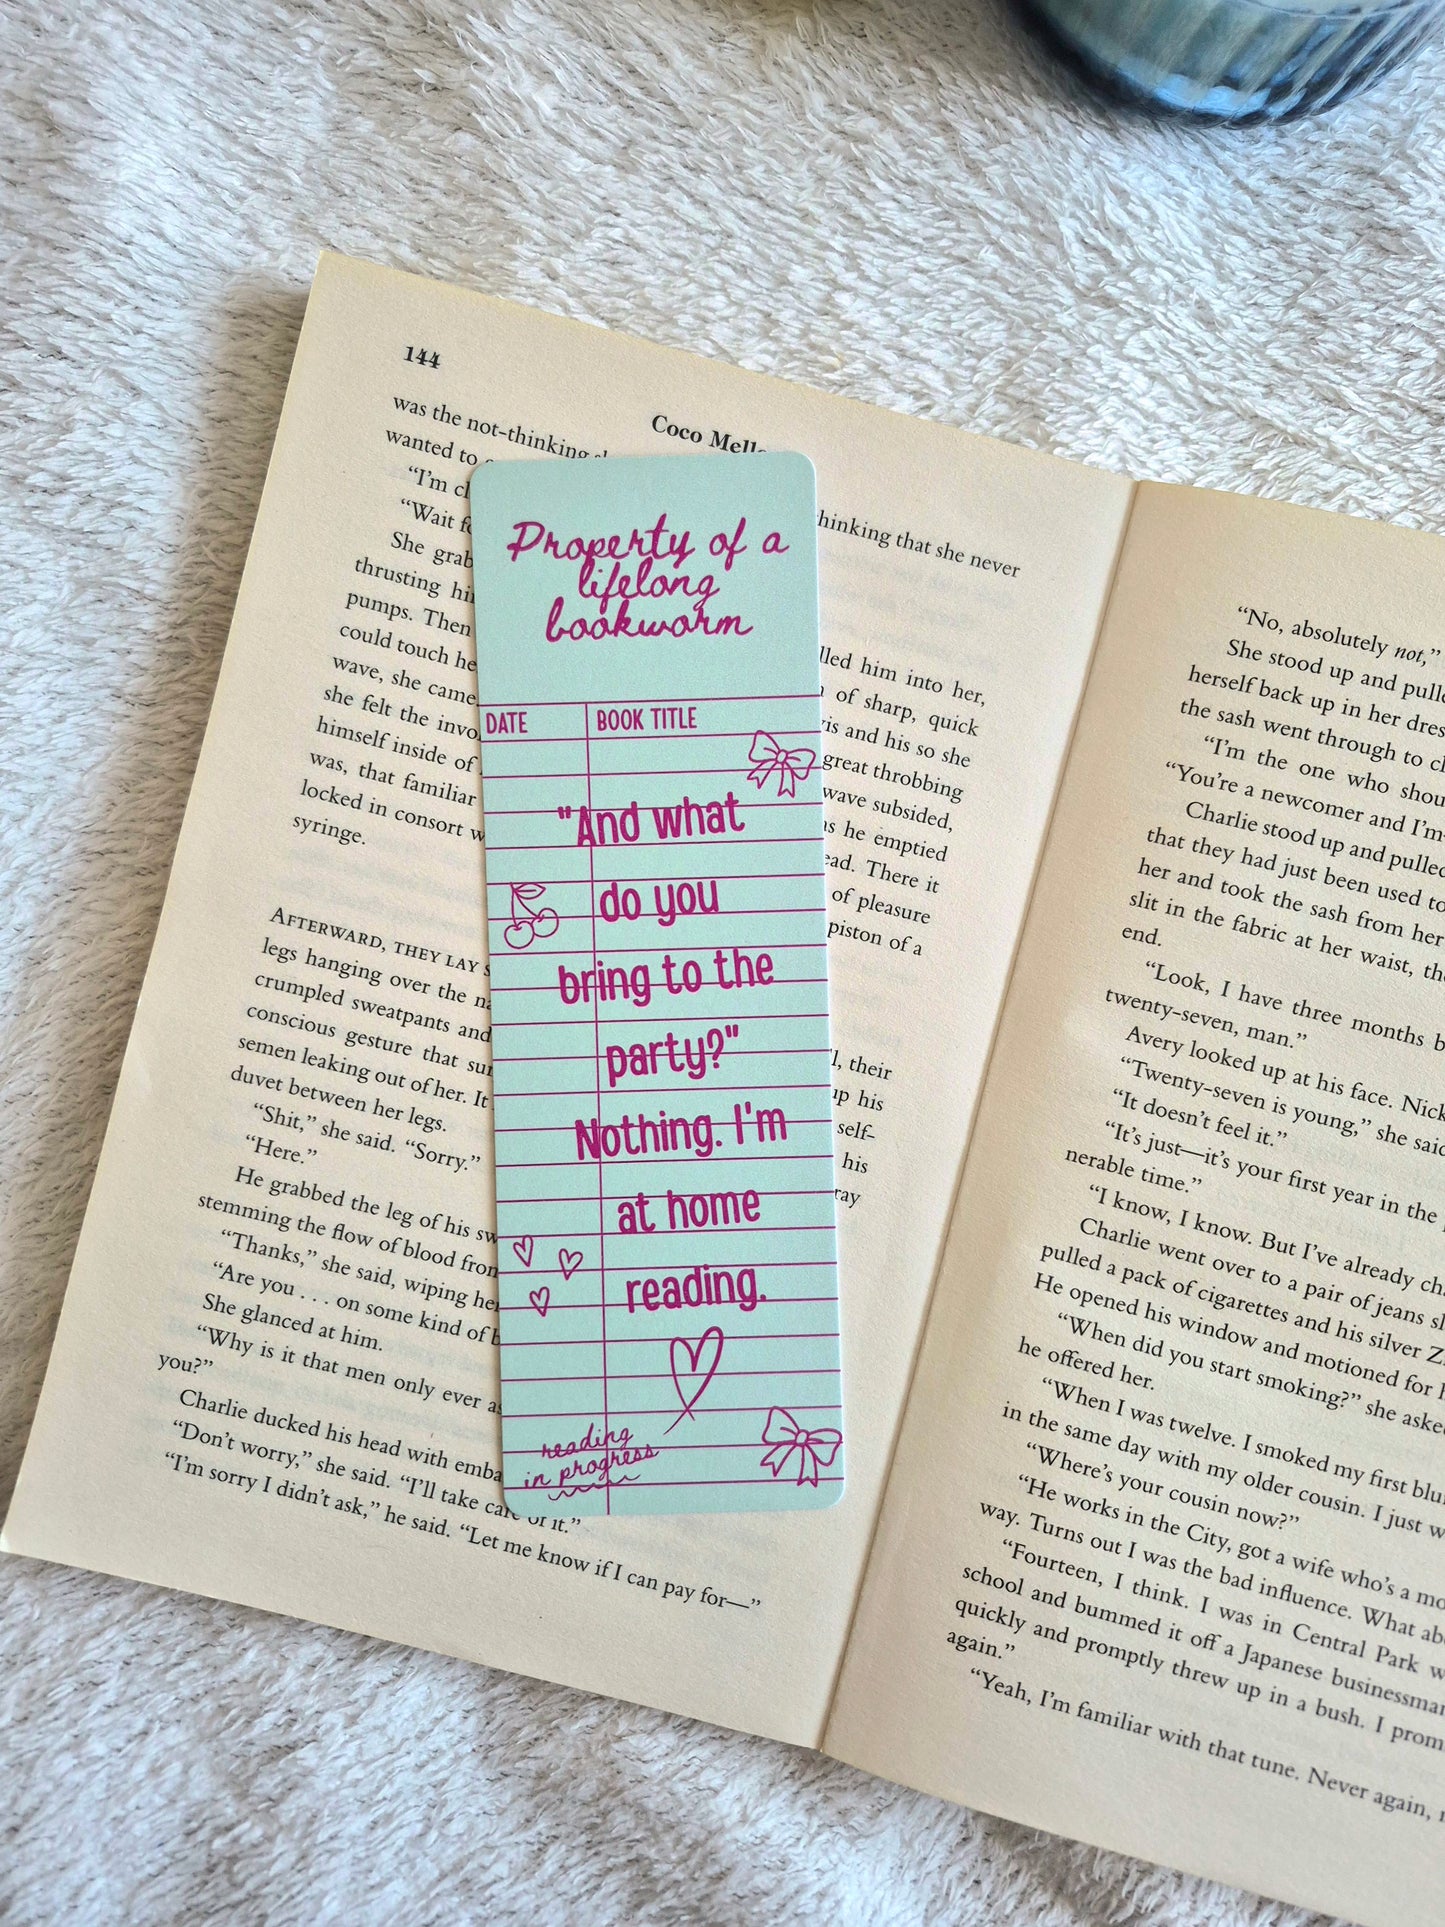 144
Coco
was the not-thinking
thinking that she never
wanted to
“I’m
“Wait
She
thrusting
pumps. Then
could touch
wave, she came
she felt the
himself inside of
was, that familiar
locked in consort
syringe.
him into her,
of sharp, quick
and his so she
great throbbing
wave subsided,
he emptied
There it
of pleasure
piston of a
AFTERWARD, THEY LAY
legs hanging over the
crumpled sweatpants and
conscious gesture that
semen leaking out of her. It
duvet between her legs.
“Shit,” she said. “Sorry.”
“Here.”
He grabbed the leg of his
stemming the flow of blood
“Thanks,” she said, wiping
“Are you . . . on some kind of
She glanced at him.
“Why is it that men only ever
you?”
Charlie ducked his head with
“Don’t worry,” she said. “I’ll take care of it.”
“I’m sorry I didn’t ask,” he said. “Let me know if I can pay for—”
their
his
self-
his
Property of a
lifelong
bookworm
DATE BOOK TITLE
"And what
do you
bring to the
party?"
Nothing. I'm
at home
reading.
reading
in progress
“No, absolutely not,”
She stood up and
herself back up in her
the sash went through to
“I’m the one who
“You’re a newcomer and
Charlie stood up and pulled
that they had just been used to
her and took the sash from her
slit in the fabric at her waist,
end.
“Look, I have three months
twenty-seven, man.”
Avery looked up at his face. Nick
“Twenty-seven is young,” she said
“It doesn’t feel it.”
“It’s just—it’s your first year in the
nerable time.”
“I know, I know. But I’ve already
Charlie went over to a pair of jeans
pulled a pack of cigarettes and his silver
He opened his window and motioned for
“When did you start smoking?” she
he offered her.
“When I was twelve. I smoked my first
in the same day with my older cousin. I just
“Where’s your cousin now?”
“He works in the City, got a wife who’s a
way. Turns out I was the bad influence. What
“Fourteen, I think. I was in Central Park
school and bummed it off a Japanese
quickly and promptly threw up in a bush. I
again.”
“Yeah, I’m familiar with that tune. Never again,